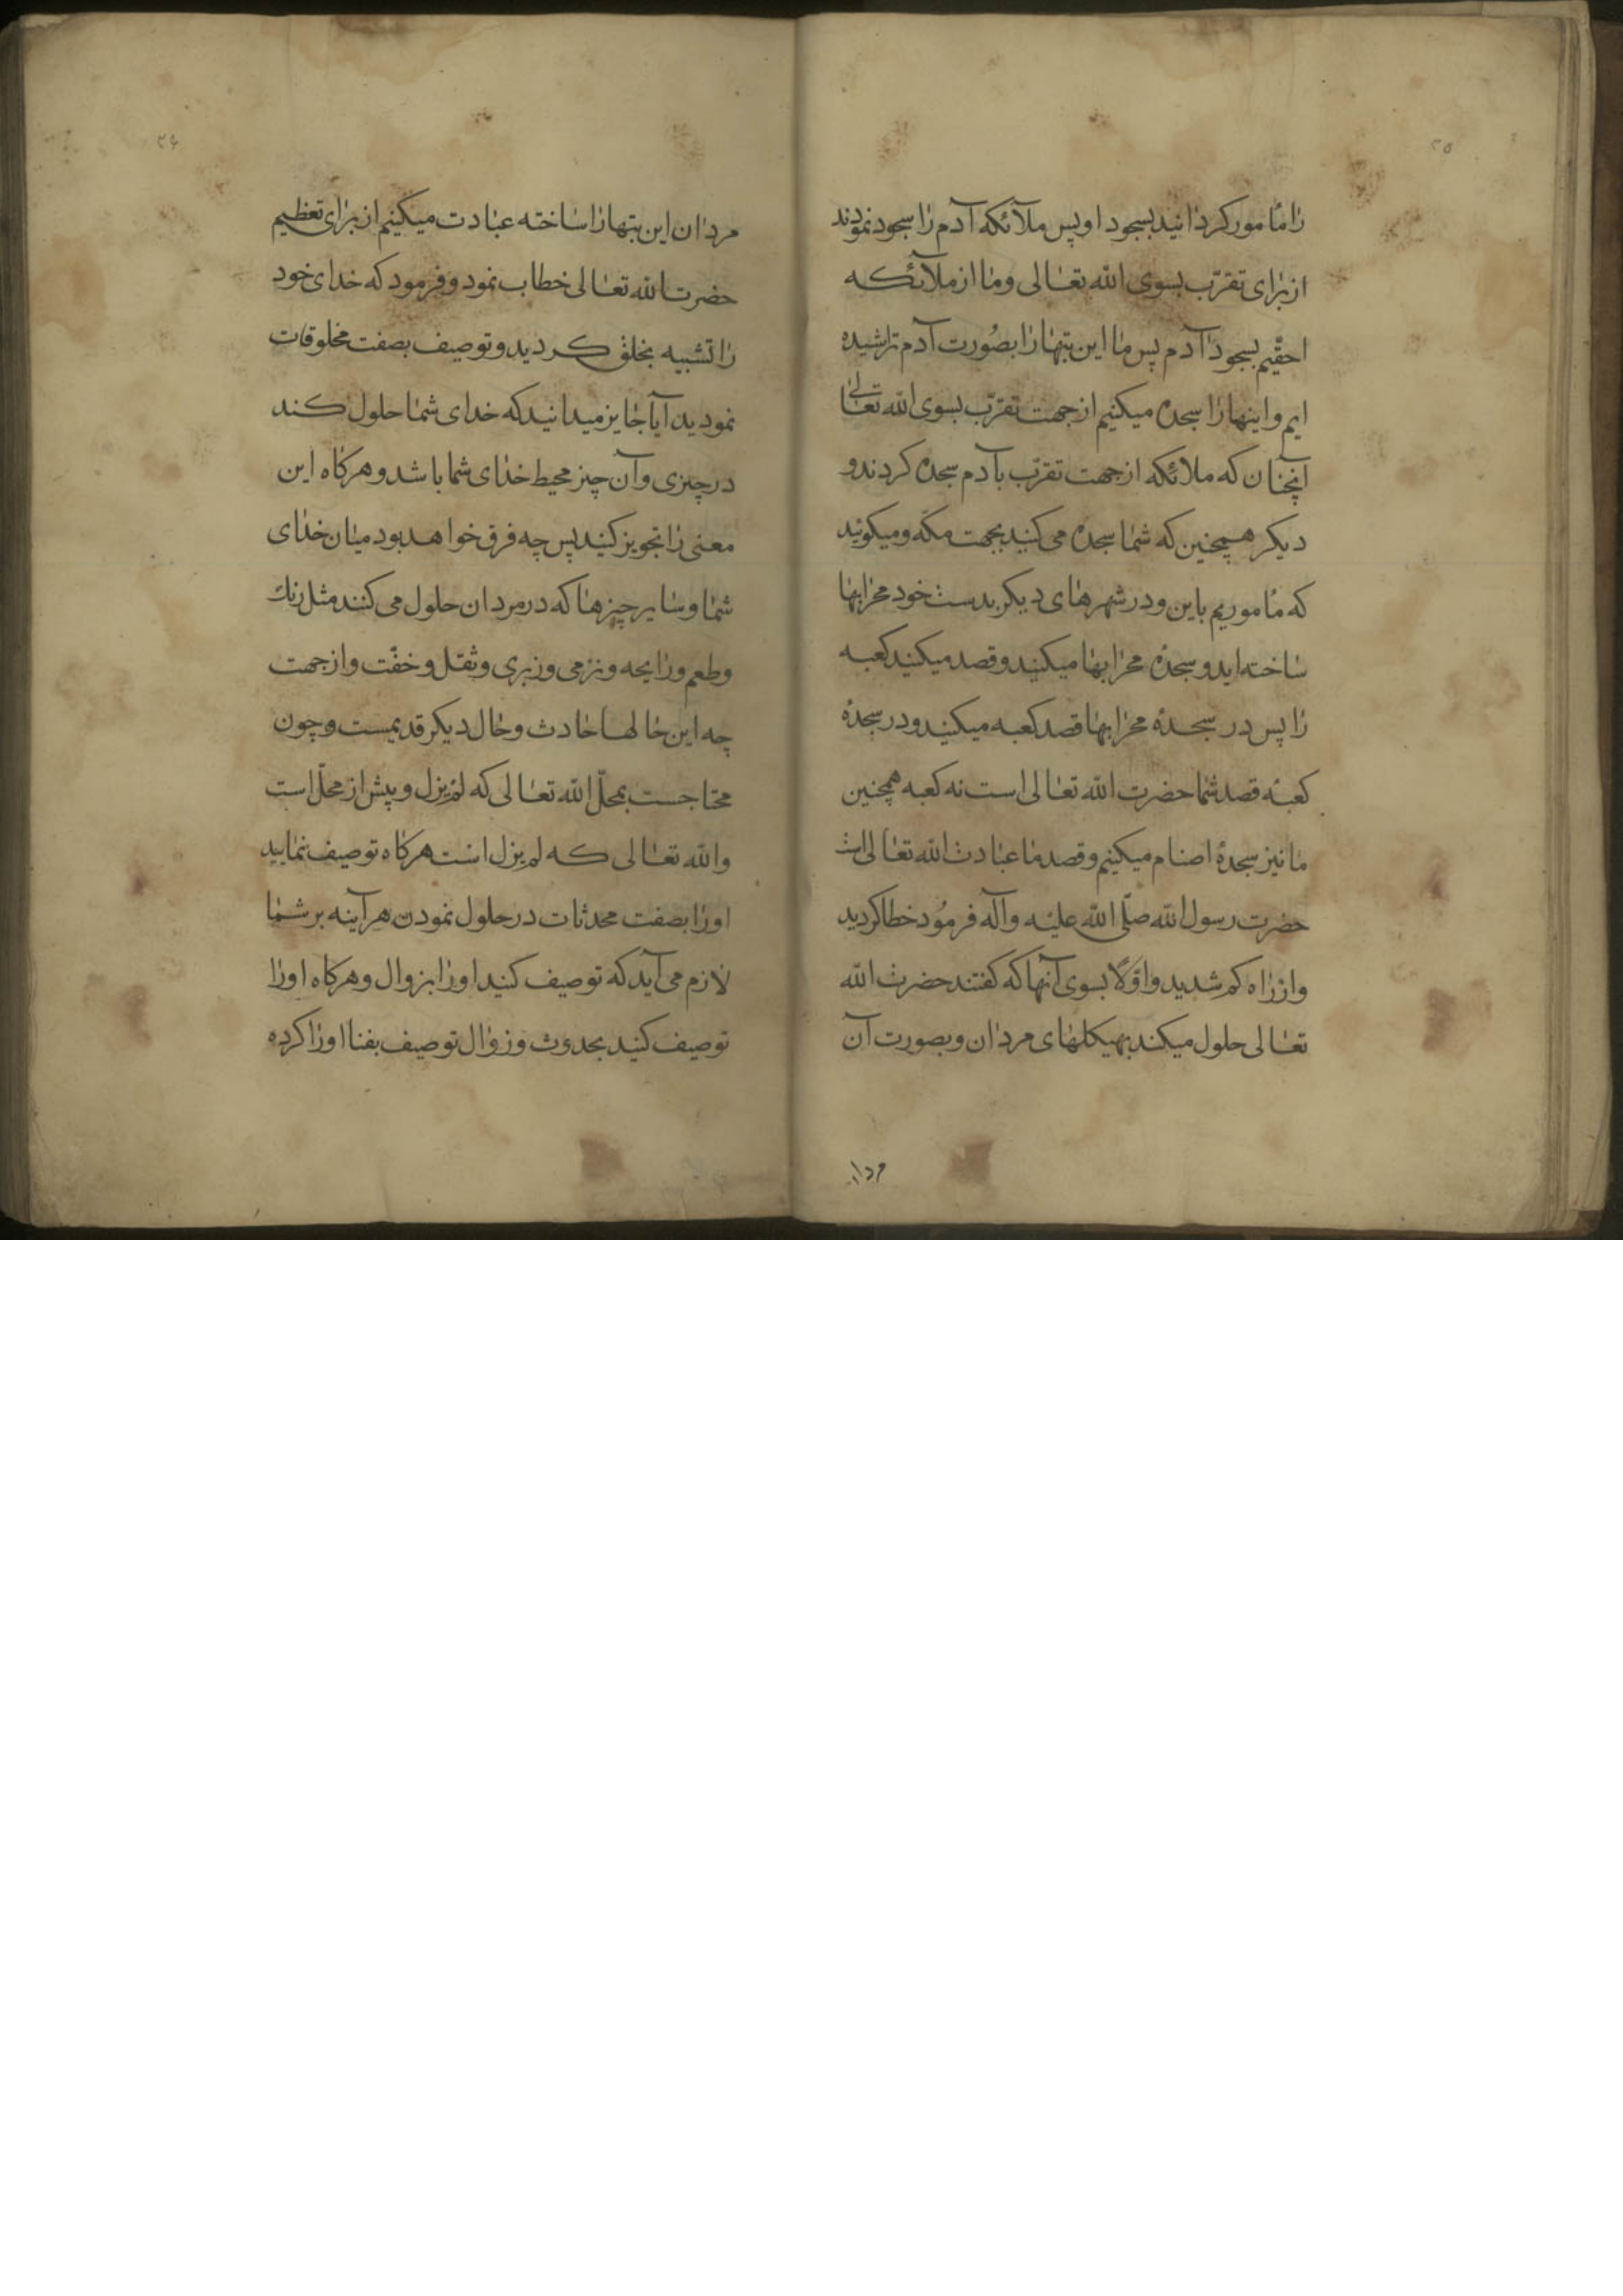 ۲۵
را مأمور کردانید بسجود او پس ملآئکه آدم را سجود نمودند
از برای تقرّب بسوی الله تعالی وما از ملآئکه
احقّیم بسجود آدم پس ما این بتها را بصُورت آدم تراشیده
ایم و اینها را سجده میکنیم از جهت تقرّب بسوی الله تعالی
آنچنان که ملائکه از جهت تقرّب بآدم سجده کردند و
دیکر همچنین که شما سجده می کنید بجهت مکّه و میکوئید
که مأموریم باین و در شهرهای دیکر بدست خود محرابها
ساخته اید و سجدهٔ محرابها میکنید و قصد میکنید کعبه
را پس در سجدهٔ محرابها قصد کعبه میکنید و در سجدهٔ
کعبه قصد شما حضرت الله تعالی است نه کعبه همچنین
ما نیز سجدهٔ اصنام میکنیم و قصد ما عبادت الله تعالی است
حضرت رسول الله صلّی الله علیه وآله فرمُود خطا کردید
و از راه کم شدید و اوّلاً بسوی آنها که کفتند حضرت الله
تعالی حلول میکند بهیکلهای مردان و بصورت آن
مردان
۲۶
مردان این بتها را ساخته عبادت میکنیم از برای تعظیم
حضرت الله تعالی خطاب نمود و فرمود که خدای خود
را تشبیه بخلق کردید و توصیف بصفت مخلوقات
نمودید آیا جایز میدانید که خدای شما حلول کند
در چیزی و آن چیز محیط خدای شما باشد و هرکاه این
معنی را تجویز کنید پس چه فرق خواهد بود میان خدای
شما و سایر چیزها که در مردان حلول می کنند مثل رنك
وطعم ورایحه ونرمی وزبری وثقل وخفّت واز جهت
چه این حالها حادث وحال دیکر قدیمست و چون
محتاجست بمحلّ الله تعالی که لم یزل و پیش از محلّ است
والله تعالی که لم یزل است هرکاه توصیف نمایید
اورا بصفت محدثات در حلول نمودن هرآینه بر شما
لازم می آید که توصیف کنید اورا بزوال و هرکاه اورا
توصیف کنید بحدوث وزوال توصیف بفنا اورا کرده